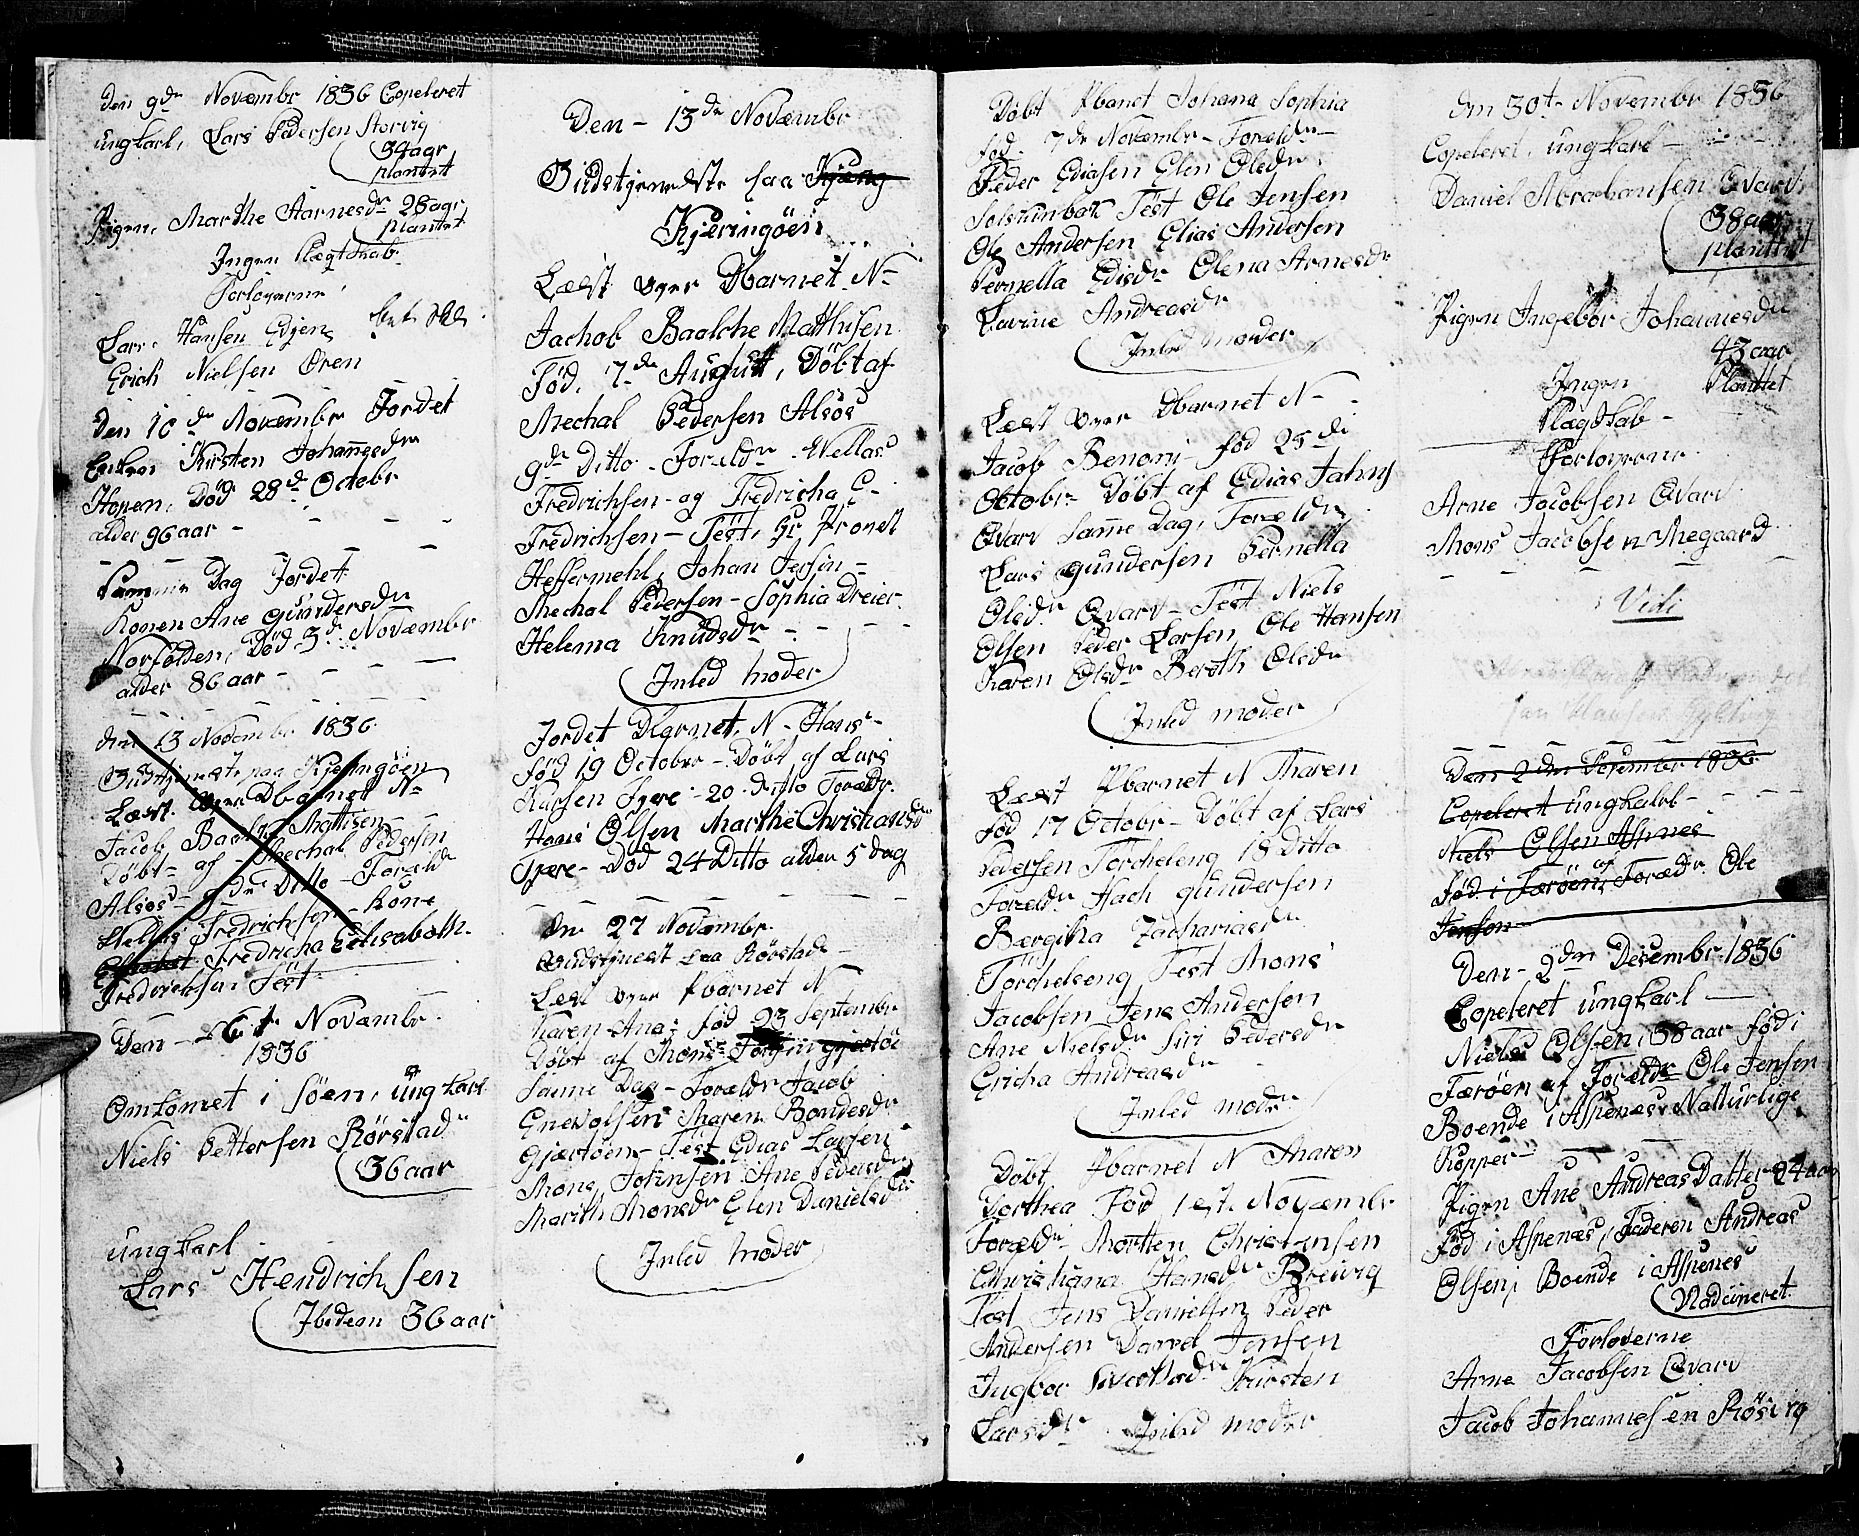 Den 9de Novæmbr 1836 Copeleret
ungkarl, Lars Pedersen Storvig
34 aar
plantet
Pigen, Marthe Aarnesdr 28 aar
plantet
Ingen Slægtskab
Forloverne
Lars Hansen
Erich Nielsen Øren
Den 10de Novæmbr Jordet
Enken Kirsten Johanesdr
Hopen, Død 28de Octobr
alder 96 aar
Samme Dag Jordet
Konen Ane Gundersdr
Norfolden, Død 3de Novæmbr
alder 86 aar
den 13 Novembr 1836
Gudstjenest paa Kjeringöen
Læst over Dbarnet N
Jacob Baalche Mattisen
Døbt af Mechal Pedersen
Alsos 9de Ditto Foreld
Wellas Fredrichsen Kone
Fredricha Elisabeth
Fredrichsen Test
Den Novæmbr
1836
Omkomet i Søen, ungkarl
Niels Pettersen Rørstad
36 aar
ungkarl
Lars Hendrichsen
Ibidem 36 aar
Den 13de Novæmbr
Gudstjeneste paa
Kjæringöen
Læst over Dbarnet N
Jachob Baalche Mathisen
Fød 7de August, Døbt af
Mechal Pedersen Alsos
9de Ditto Foreldr Wellas
Fredrichsen og Fredricha E
Fredrichsen Test, hr Provst
Heffermehl, Johan Jessen
Mechal Pedersen Sophia Dreier
Helema Knudsdr
Inled moder
Jordet Dbarnet N Hans
fød 19 October Døbt af Lars
Karsen Tjere 20 ditto Foreldr
Hans Olsen Marthe Christiansdr
Tjere Død 24 Ditto alder 5 dag
Den 27 Novæmbr
Gudstjenest paa Rørstad
Læst over Pbarnet N
Karen Ana fød 23 September
Døbt af Mons
Samme Dag Foreldr Jacob
Enevolsen Maren Bondesdr
Gjærtöen Test Edias Larsen
Mons Johnsen Ane Pedersdr
Marith Monsdr Elen Danielsdr
Inled moder
Døbt Pbarnet Johana Sophia
fød 7de Novæmbr Foreldr
Peder Ediasen Elen Olsdr
Solstunbak Test Ole Jensen
Ole Andersen Elias Andersen
Pernella Edisdr Olena Arnesdr
Lavine Andreasdr
Inled moder
Læst over Dbarnet N
Jacob Benoni fød 25de
Octobr Døbt af Edias Jahns
Qvarv Samme Dag, Foreldr
Lars Gundersen Pernella
Olsdr Qvarv Test Niels
Olsen Peder Larsen Ole Hansen
Karen Olsdr Bereth Olsdr
Inled moder
Læst Pbarnet N Maren
fød 17 Octobr Døbt af Lars
Pedersen Torcheleng 18 Ditto
Foreldr Isach Gundersen
Bærgitha Zachariasdr
Torcheleng Test Mons
Jacobsen Jens Andersen
Ane Nielsdr Siri Pedersdr
Ericha Andreasdr
Inled moder
Døbt Pbarnet N Maren
Dorthea Fød 1est Novæmbr
Foreldr Morten Christensen
Christiana Hansdr Breivig
Test Jens Danielsen Peder
Andersen Daniel Jensen
Ingbor Sivertsdr Kirsten
Larsdr Inled moder
Den 30te Novembr 1836
Copeleret, ungkarl
Daniel Abrahamsen Qvarv
38 aar
plantet
Pigen Ingebor Johannesdr
43 aar
Ingen Plantet
Slægtskab
Forloverne
Arne Jacobsen Qvarv
Mons Jacobsen Megaard
Vidi
Den 2den Desember 1836
Copeleret ungkarl
Niels Olsen Aspnes
Fød i Færöen, af Foreldr Ole
Jensen
Den 2den Desember 1836
Copeleret ungkarl
Niels Olsen, 38 aar fød i
Færöen af Foreldr Ole Jensen
Boende i Aspenæs, Naturlige
Kopper
Pigen Ane Andreas Datter 24 aar
Fød i Aspenæs, Faderen Andreas
Olsen, Boende i Aspenes
Vadcineret
Forloverne
Arne Jacobsen Qvarv
Jacob Johannesen Rösvig